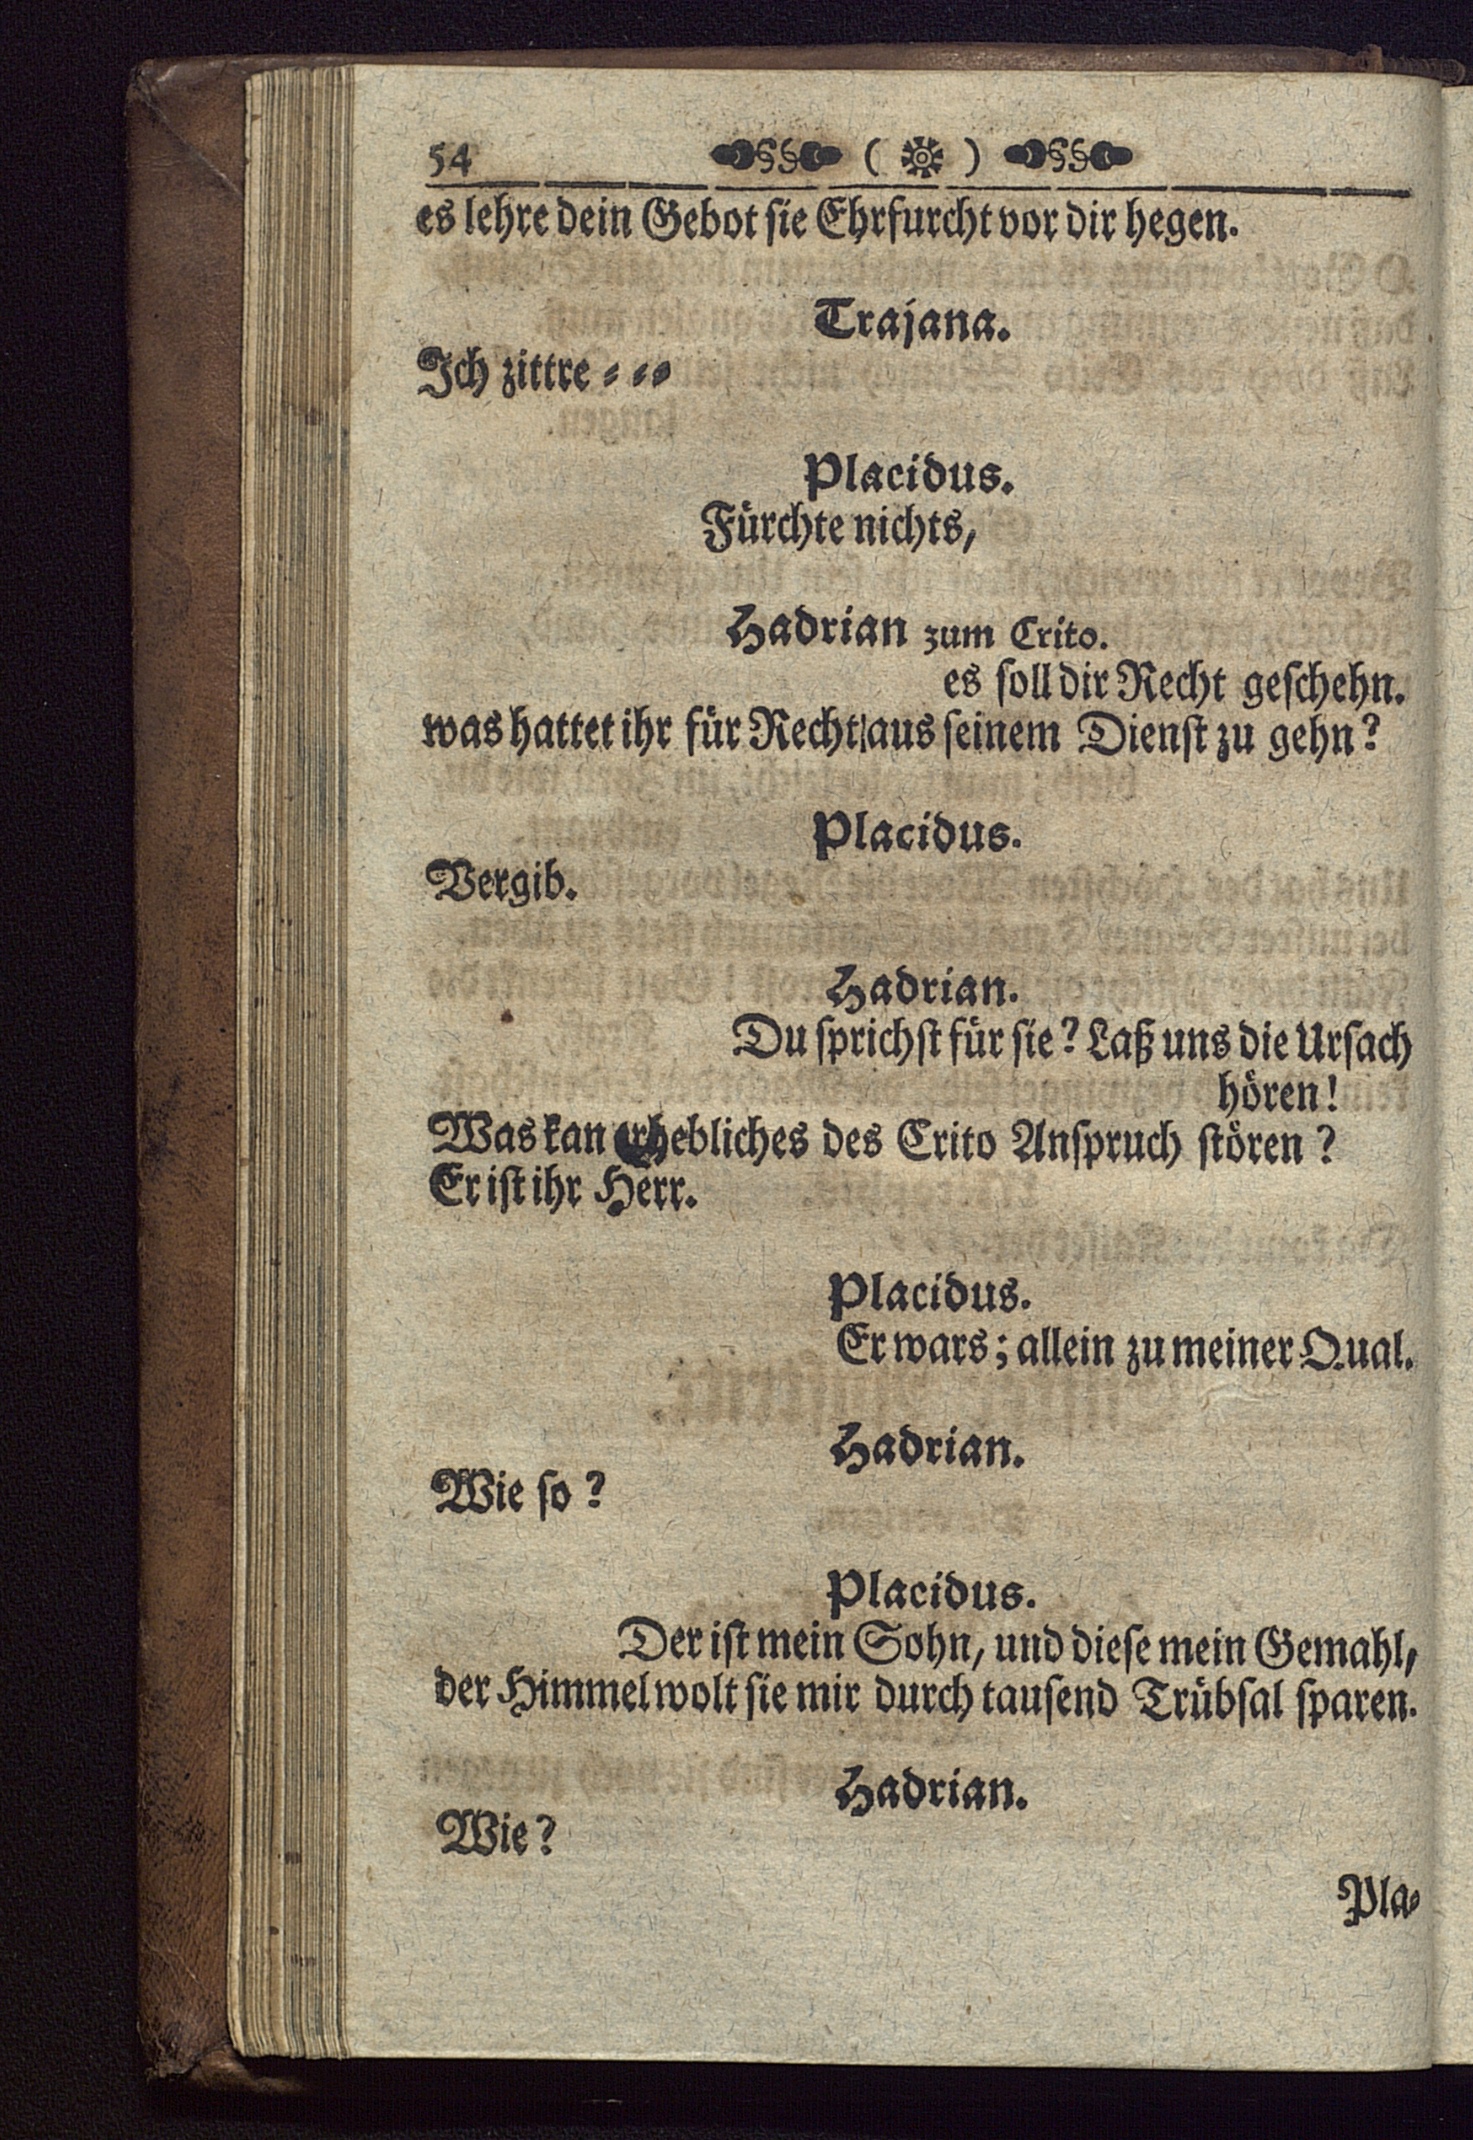 54 ( )
es lehre dein Gebot ſie Ehrfurcht vor dir hegen.
Trajana.
Ich zittre ⸗ ⸗⸗
Placidus.
Fürchte nichts,
Hadrian zum Crito.
es ſoll dir Recht geſchehn.
was hattet ihr für Recht/ aus ſeinem Dienſt zu gehn?
Placidus.
Vergib.
Hadrian.
Du ſprichſt für ſie? Laß uns die Urſach
hören!
Was kan erhebliches des Crito Anſpruch ſtören?
Er iſt ihr Herr.
Placidus.
Er wars; allein zu meiner Qual.
Hadrian.
Wie ſo?
Placidus.
Der iſt mein Sohn, und dieſe mein Gemahl,
der Himmel wolt ſie mir durch tauſend Trübſal ſparen.
Hadrian.
Wie?
Pla⸗